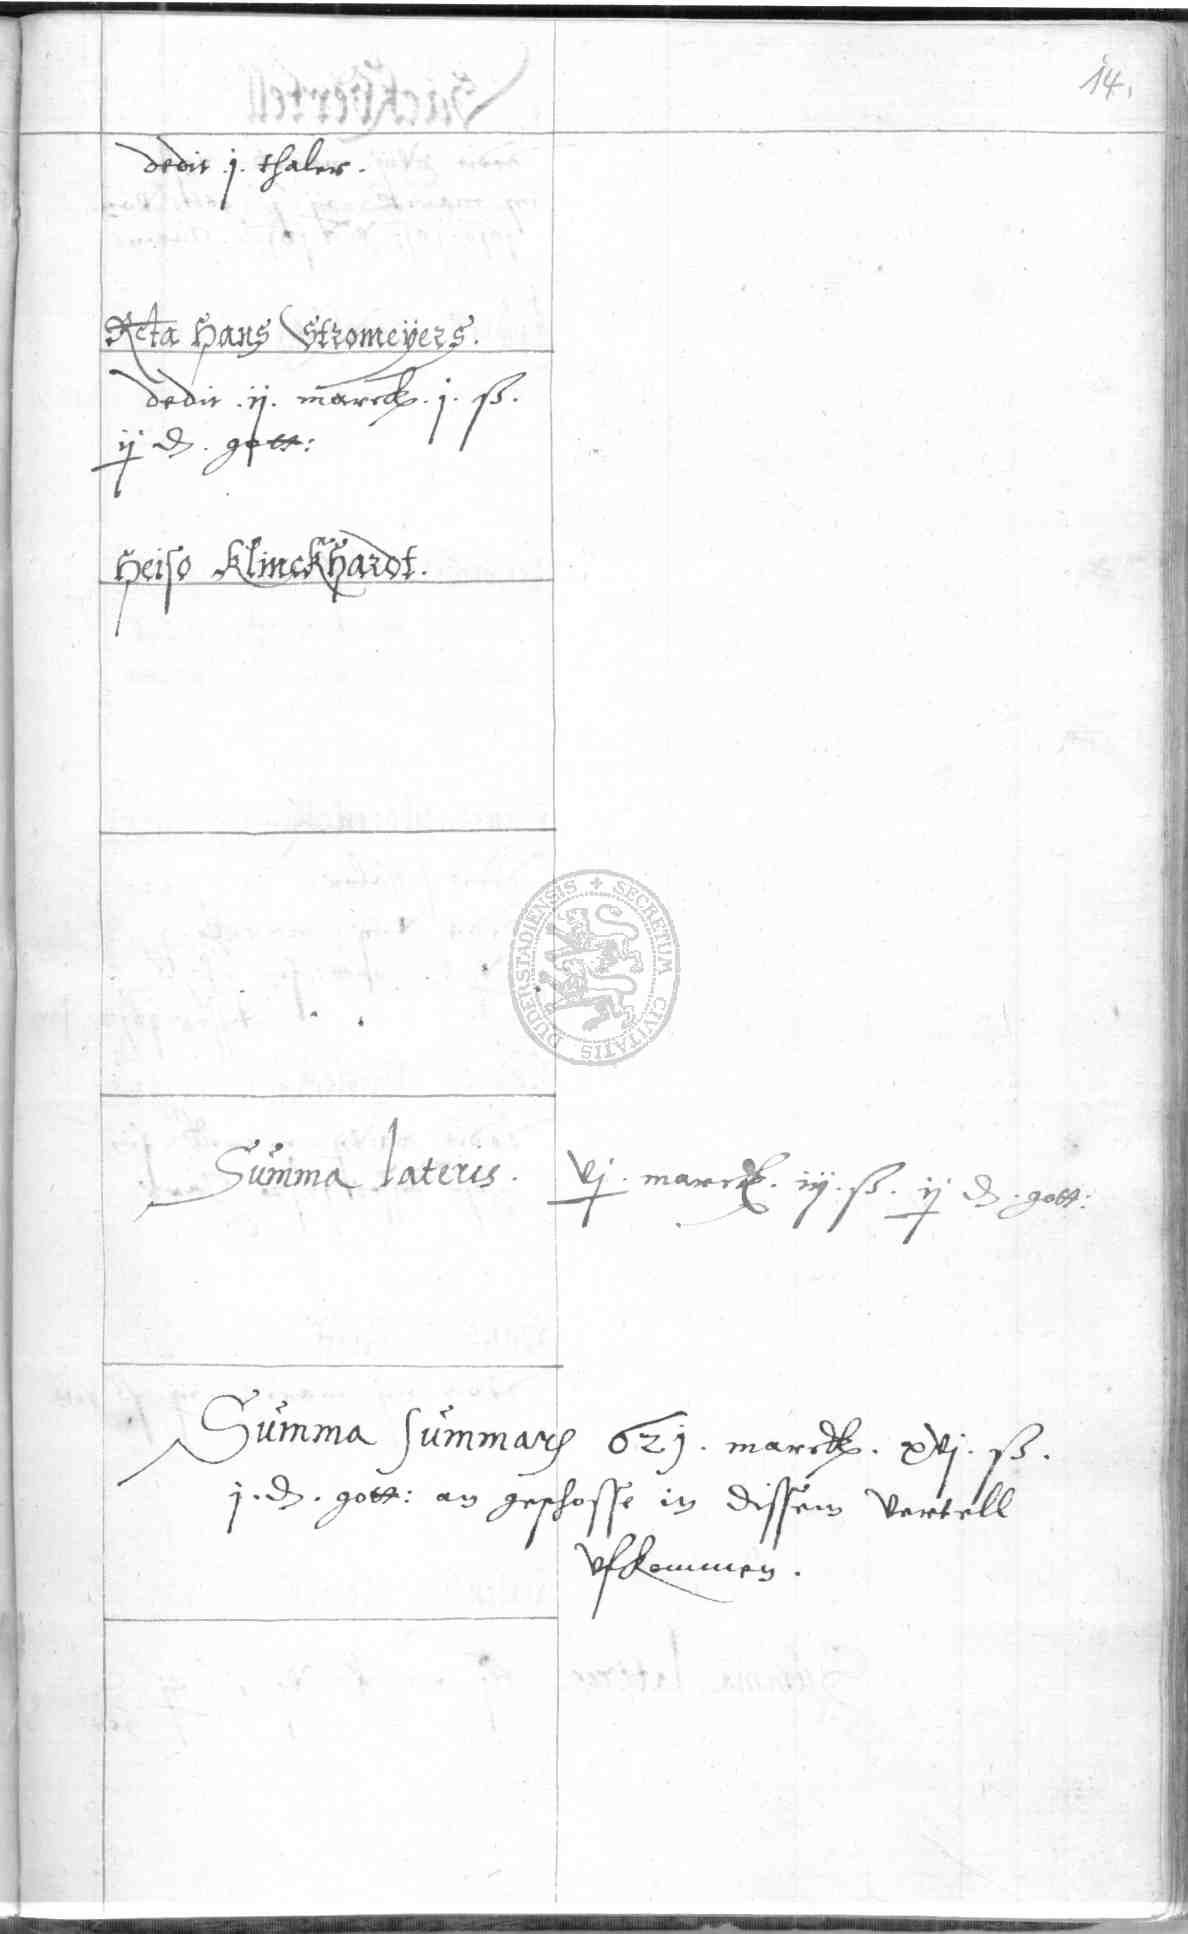 14.
dedit .j. thaler.
Relicta Hans Stromeÿers.
dedit .ij. marck. j. ß.
ij ₰. gott:
Heiso Klinckhardt.
SECRETUM CIVITATIS DUDERSTADIENSIS
Summa lateris. vj. marck. iij. ß. ij ₰. gott:
Summa summarum 621. marck. xvj. ß.
j. ₰. gott: an geschosse in dissem vertell
vfkommen.